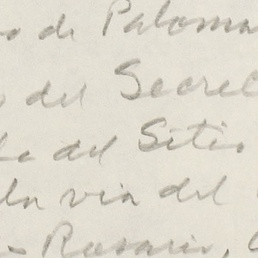 de Paloma
del Secre
del Sitio
la via del
Rosario,